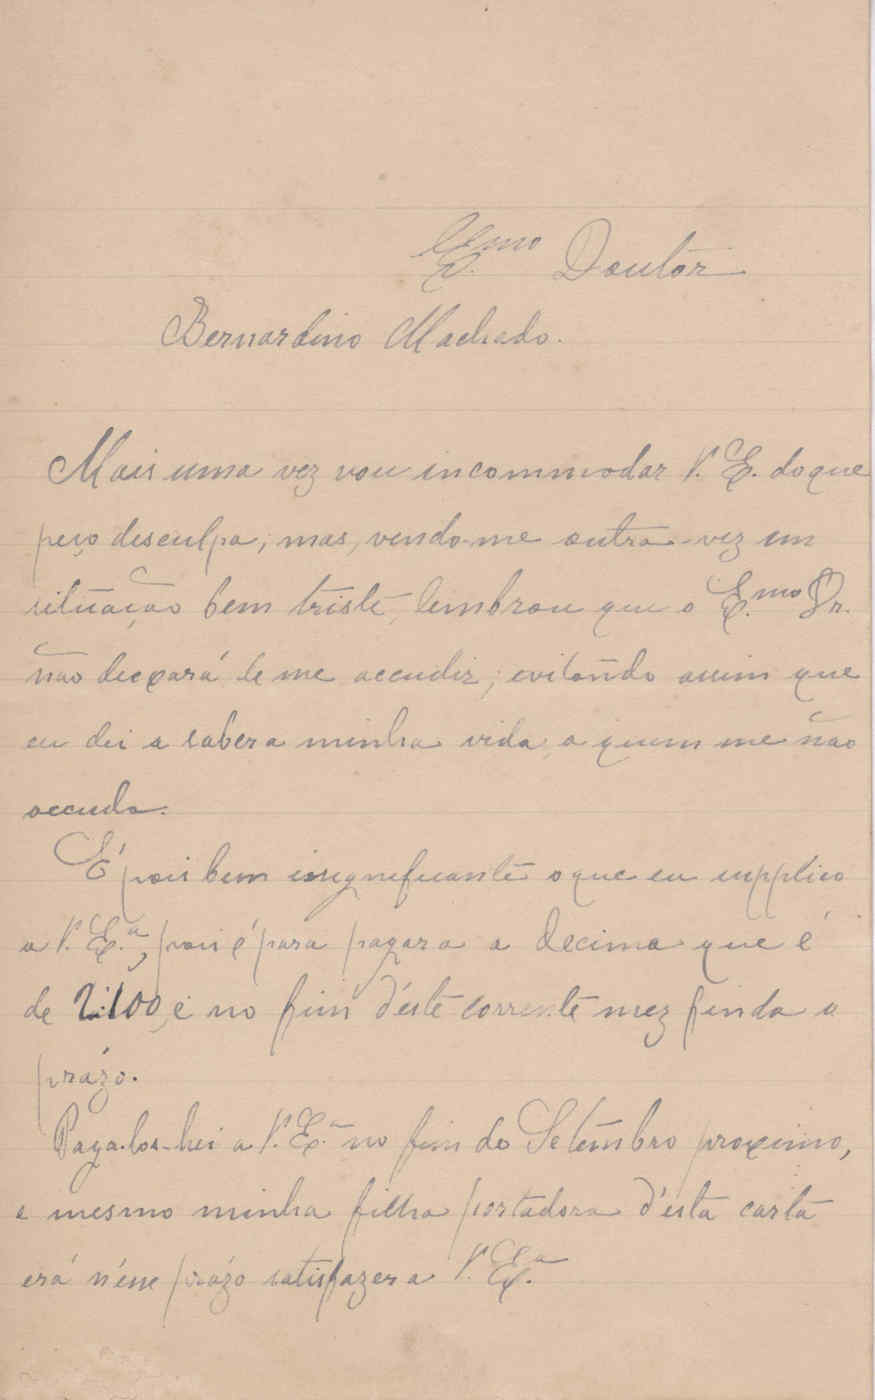 Exmo Doutor
Bernardino Machado.
Mais uma vez vou incommodar V. Ex. do que
peço desculpa; mas, vendo-me outra vez em
situação bem triste, lembrou que o Ex.mo Dr.
não deixará de me accudir; evitando assim que
eu dei a saber a minha vida a quem me não
accuda.
É pois bem insegneficante o que eu supplico
a V. Ex.a, pois é para pagar a a decima que é
de 2:100, e no fim d'éste corrente mez finda o
prázo.
Paga-los-hei a V. Ex.a no fim do Setembro proximo,
e mesmo minha filha portadora d'ésta carta
irá n'ésse prázo satisfazer a V. Ex.a